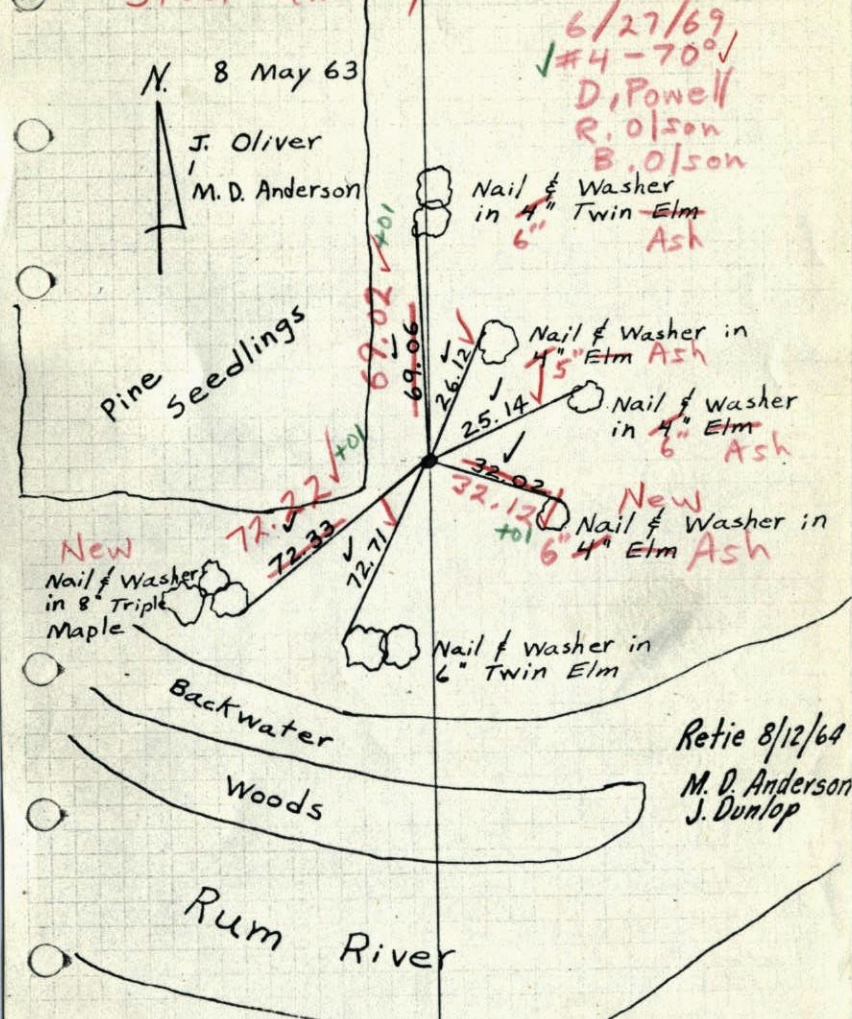 6/27/69
✓#4 - 70° ✓
D. Powell
R. Olson
B. Olson
N. 8 May 63
J. Oliver
M. D. Anderson
Nail & Washer
in 4" Twin Elm
6" Ash
69.02 ✓ +01
69.06 ✓
26.12 ✓
Nail & Washer in
4" Elm Ash
5"
25.14 ✓
Nail & Washer
in 4" Elm
6" Ash
Pine
Seedlings
32.02 ✓
32.12 ✓
+01
New
Nail & Washer in
6" 4" Elm Ash
72.22 ✓ +01
72.33 ✓
72.71 ✓
New
Nail & Washer
in 8" Triple
Maple
Nail & Washer in
6" Twin Elm
Backwater
Woods
Retie 8/12/64
M. D. Anderson
J. Dunlop
Rum River